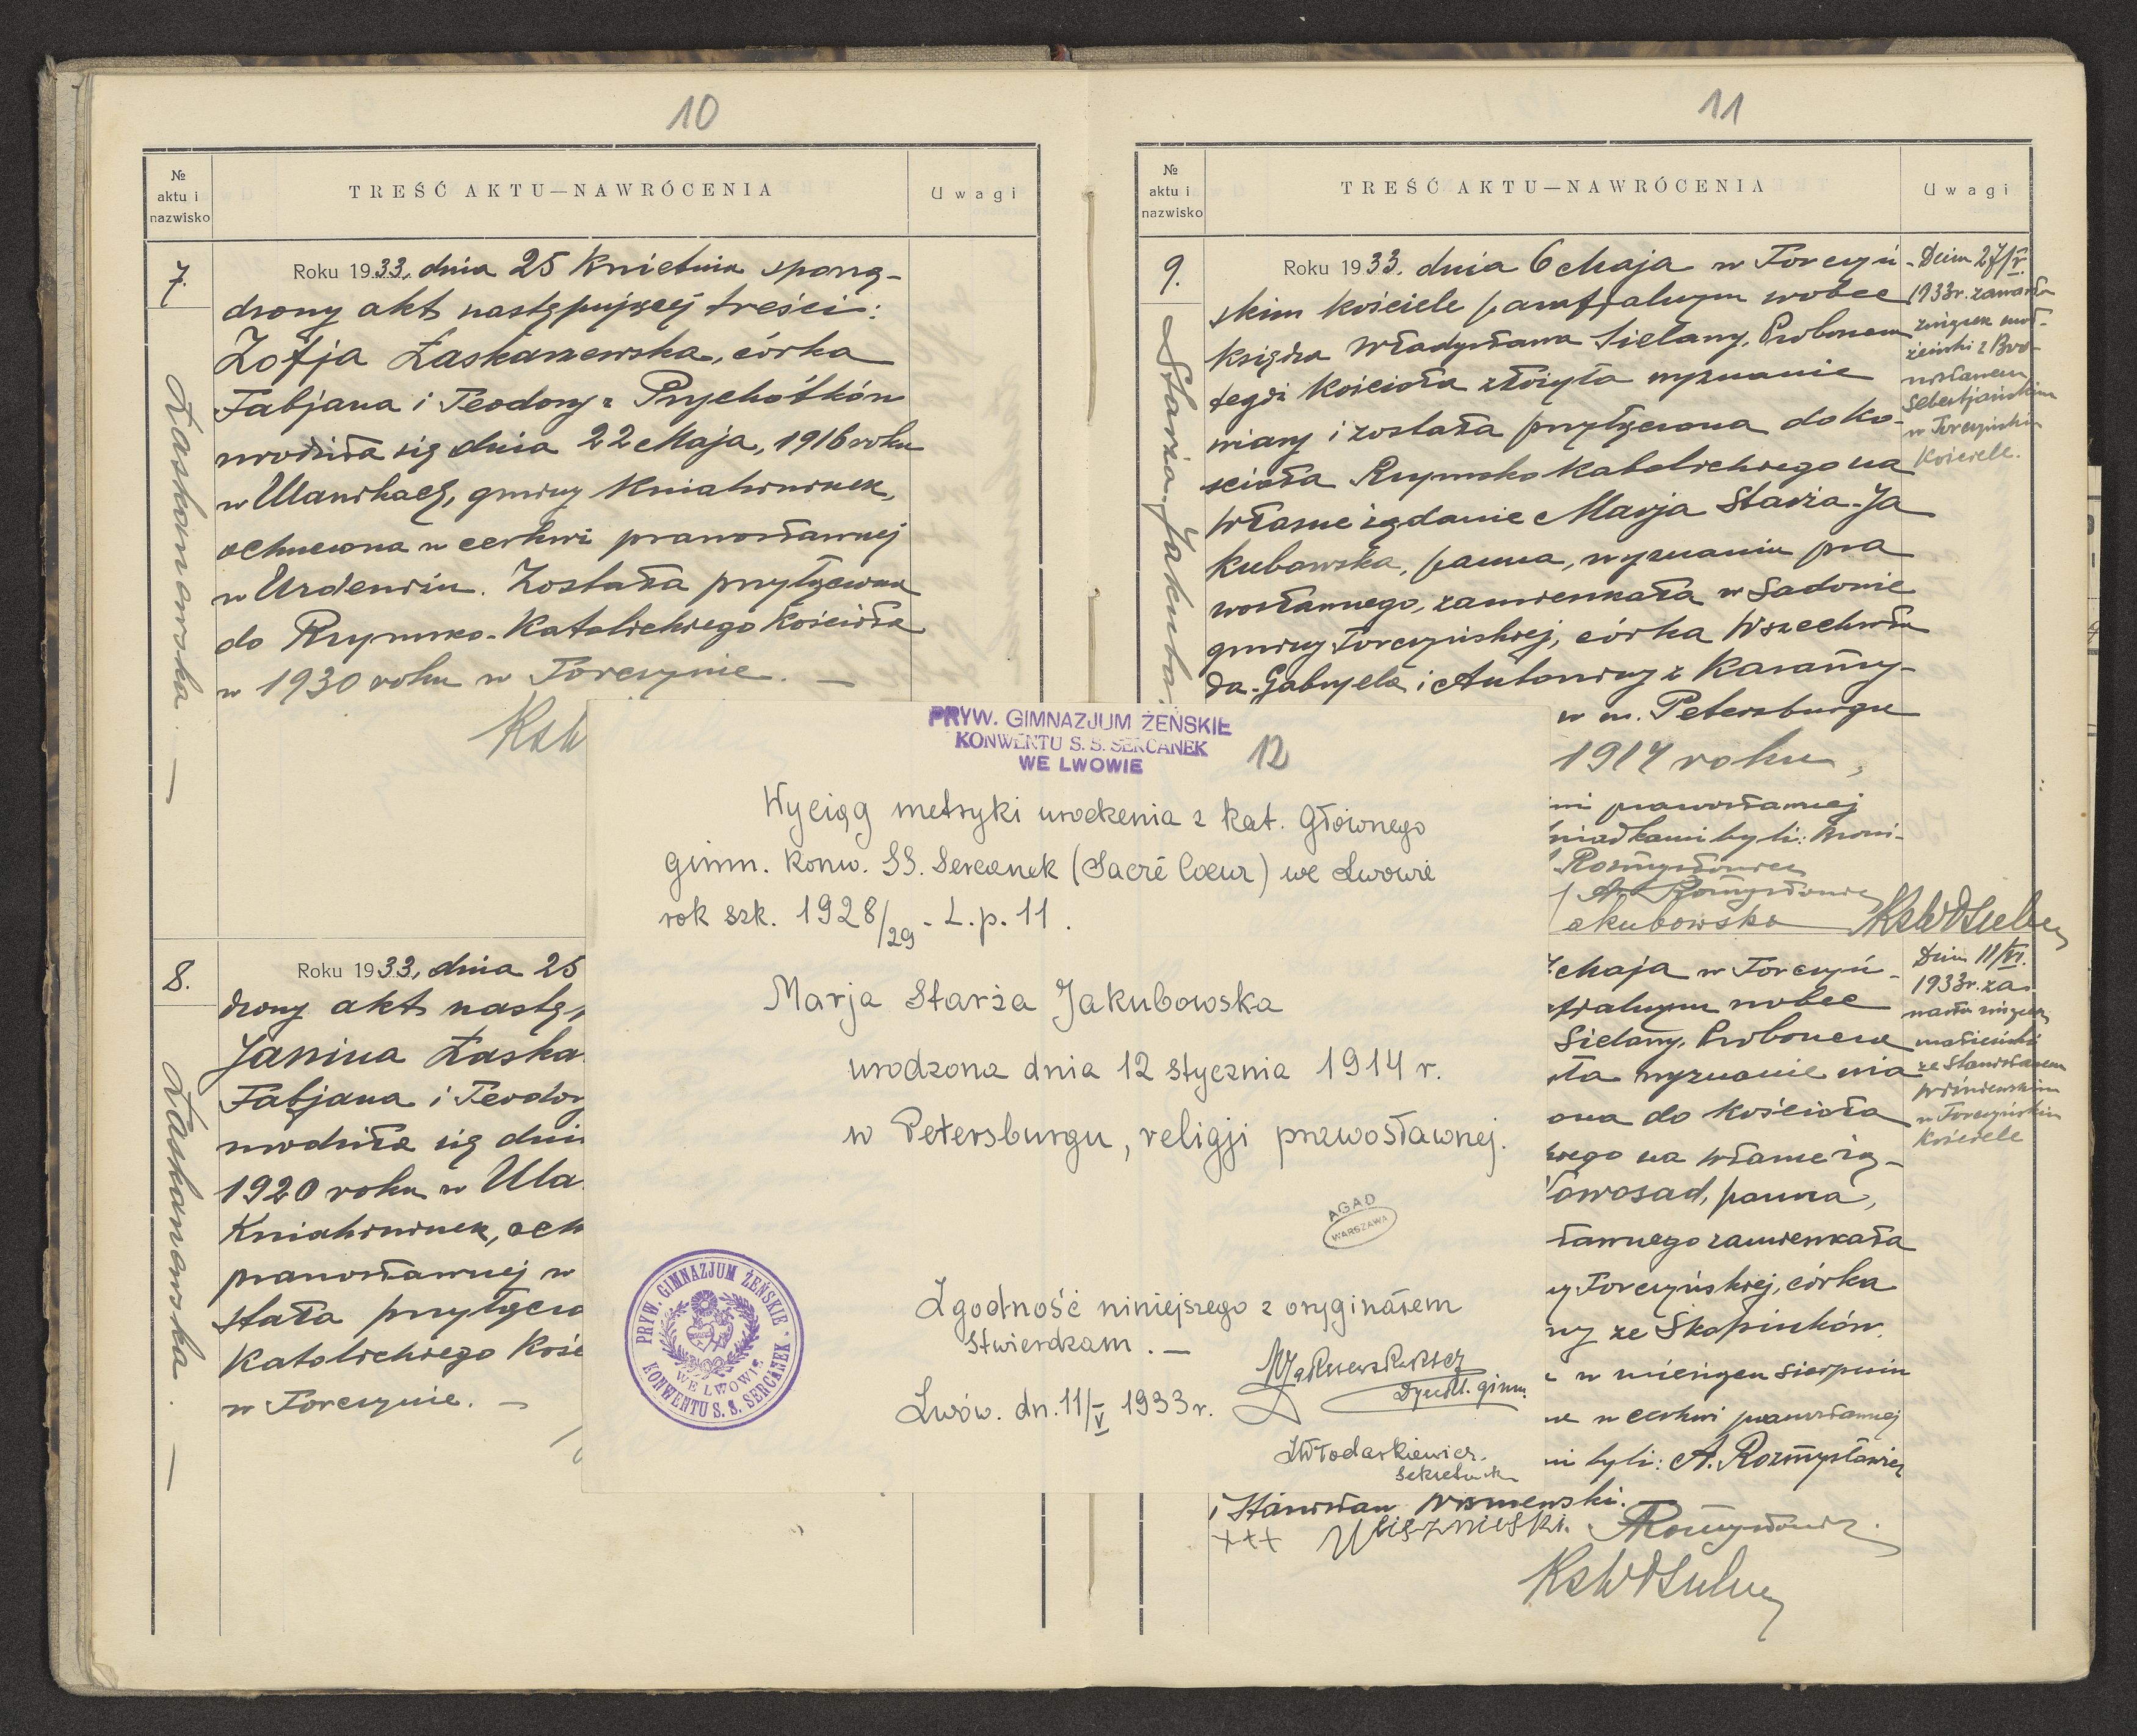 10
№ aktu i nazwisko
TREŚĆ AKTU—NAWRÓCENIA
Uwagi
7.
Łaskanowska. —
Roku 1933, dnia 25 Kwietnia sporzą-
dzony akt następującej treści:
Zofja Łaskarzewska, córka
Fabjana i Teodory z Przychótków
urodziła się dnia 22 Maja, 1916 roku
w Uławikach, gminy Kniahininek,
ochrzczona w cerkwi prawosławnej
w Usdeniriu. Została przyłączona
do Rzymsko-Katolickiego Kościoła
w 1930 roku w Torczynie. —
8.
Łaskanowska. —
Roku 1933, dnia 25
dzony akt następ
Janina Łaska
Fabjana i Teodory
urodziła się dni
1920 roku w Uła
Kniahininek, och
prawosławnej w
stała przyłącz
Katolickiego Kośc
w Torczynie. —
11
№ aktu i nazwisko
TREŚĆ AKTU—NAWRÓCENIA
Uwagi
9.
Starża-Jakubo
Roku 1933. dnia 6 Maja w Torczyń-
skim kościele parafjalnym wobec
Księdza Władysława Sielawy, Proboszcza
tegóż Kościoła złożyła wyznanie
wiary i została przyłączona do Ko-
ścioła Rzymsko Katolickiego na
własne żądanie Marja Starża-Ja
kubowska, panna, wyznania pra
wosławnego, zamieszkała w Sadowie
gminy Torczyńskiej, córka Wszechwła
da-Gabryela i Antoniny z Karaffy-
w m. Petersburgu
1914 roku,
prawosławnej
świadkami byli: Broni-
Rozmysłowicz
A. Rozmysłowicz
akubowska
Dnia 27/V.
1933r. zawarła
związek mał-
żeński z Bro-
nisławem
Sebestjańskim
w Torczyńskim
Kościele.
Maja w Torczyń-
afjalnym wobec
Sielawy, Proboszcza
ła wyznanie wia
ona do Kościoła
kiego na własne żą-
owosad, panna,
sławnego zamieszkała
y Torczyńskiej, córka
ny ze Skopiuków.
w miesiącu Sierpniu
w cerkwi prawosławnej
mi byli: A. Rozmysłowicz
i Stanisław Wiszniewski. —
+++ Wiszniefski. ARozmysłowicz.
Dnia 11/VI.
1933r. za-
warła związek
małżeński
ze Stanisławem
Wiśniewskim
w Torczyńskim
Kościele
PRYW. GIMNAZJUM ŻEŃSKIE
KONWENTU S. S. SERCANEK
WE LWOWIE
12
Wyciąg metryki urodzenia z kat. głównego
gimn. Konw. SS. Sercanek (Sacré Cœur) we Lwowie
rok szk. 1928/29 - L.p. 11.
Marja Starża Jakubowska
urodzona dnia 12 stycznia 1914 r.
w Petersburgu, religji prawosławnej.
AGAD
WARSZAWA
Zgodność niniejszego z oryginałem
stwierdzam. —
Dyrekt. gimn.
Lwów. dn. 11/V 1933 r.
Włodarkiewicz.
sekretarka
PRYW. GIMNAZJUM ŻEŃSKIE * KONWENTU S. S. SERCANEK
WE LWOWIE